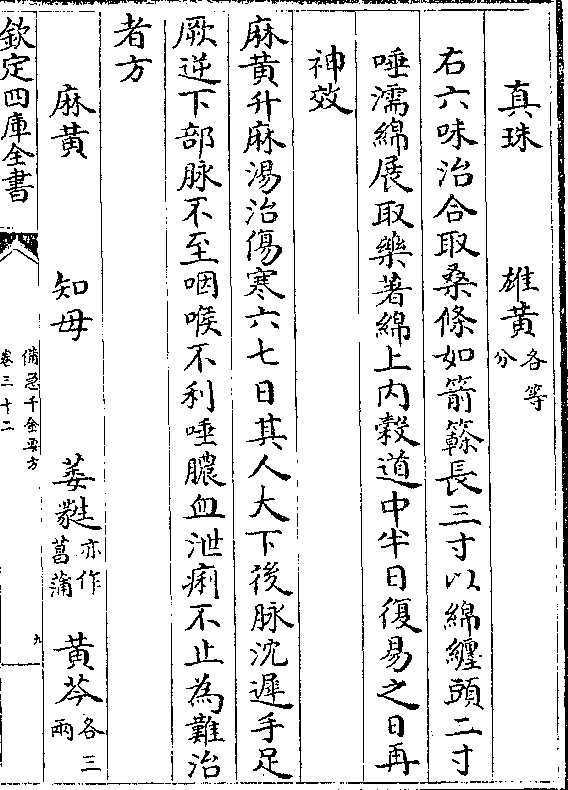 真珠　雄黄各等分
右六味治合取桑條如箭簳長三寸以綿纒頭二寸
唾濡綿展取藥著綿上内榖道中半日復易之日再
神效
麻黄升麻湯治傷寒六七日其人大下後脉沈遲手足
厥逆下部脉不至咽喉不利唾膿血泄痢不止為難治
者方
麻黄　知母　萎蕤亦作菖蒲　黄芩各三兩
欽定四庫全書
備急千金要方
卷三十二
九